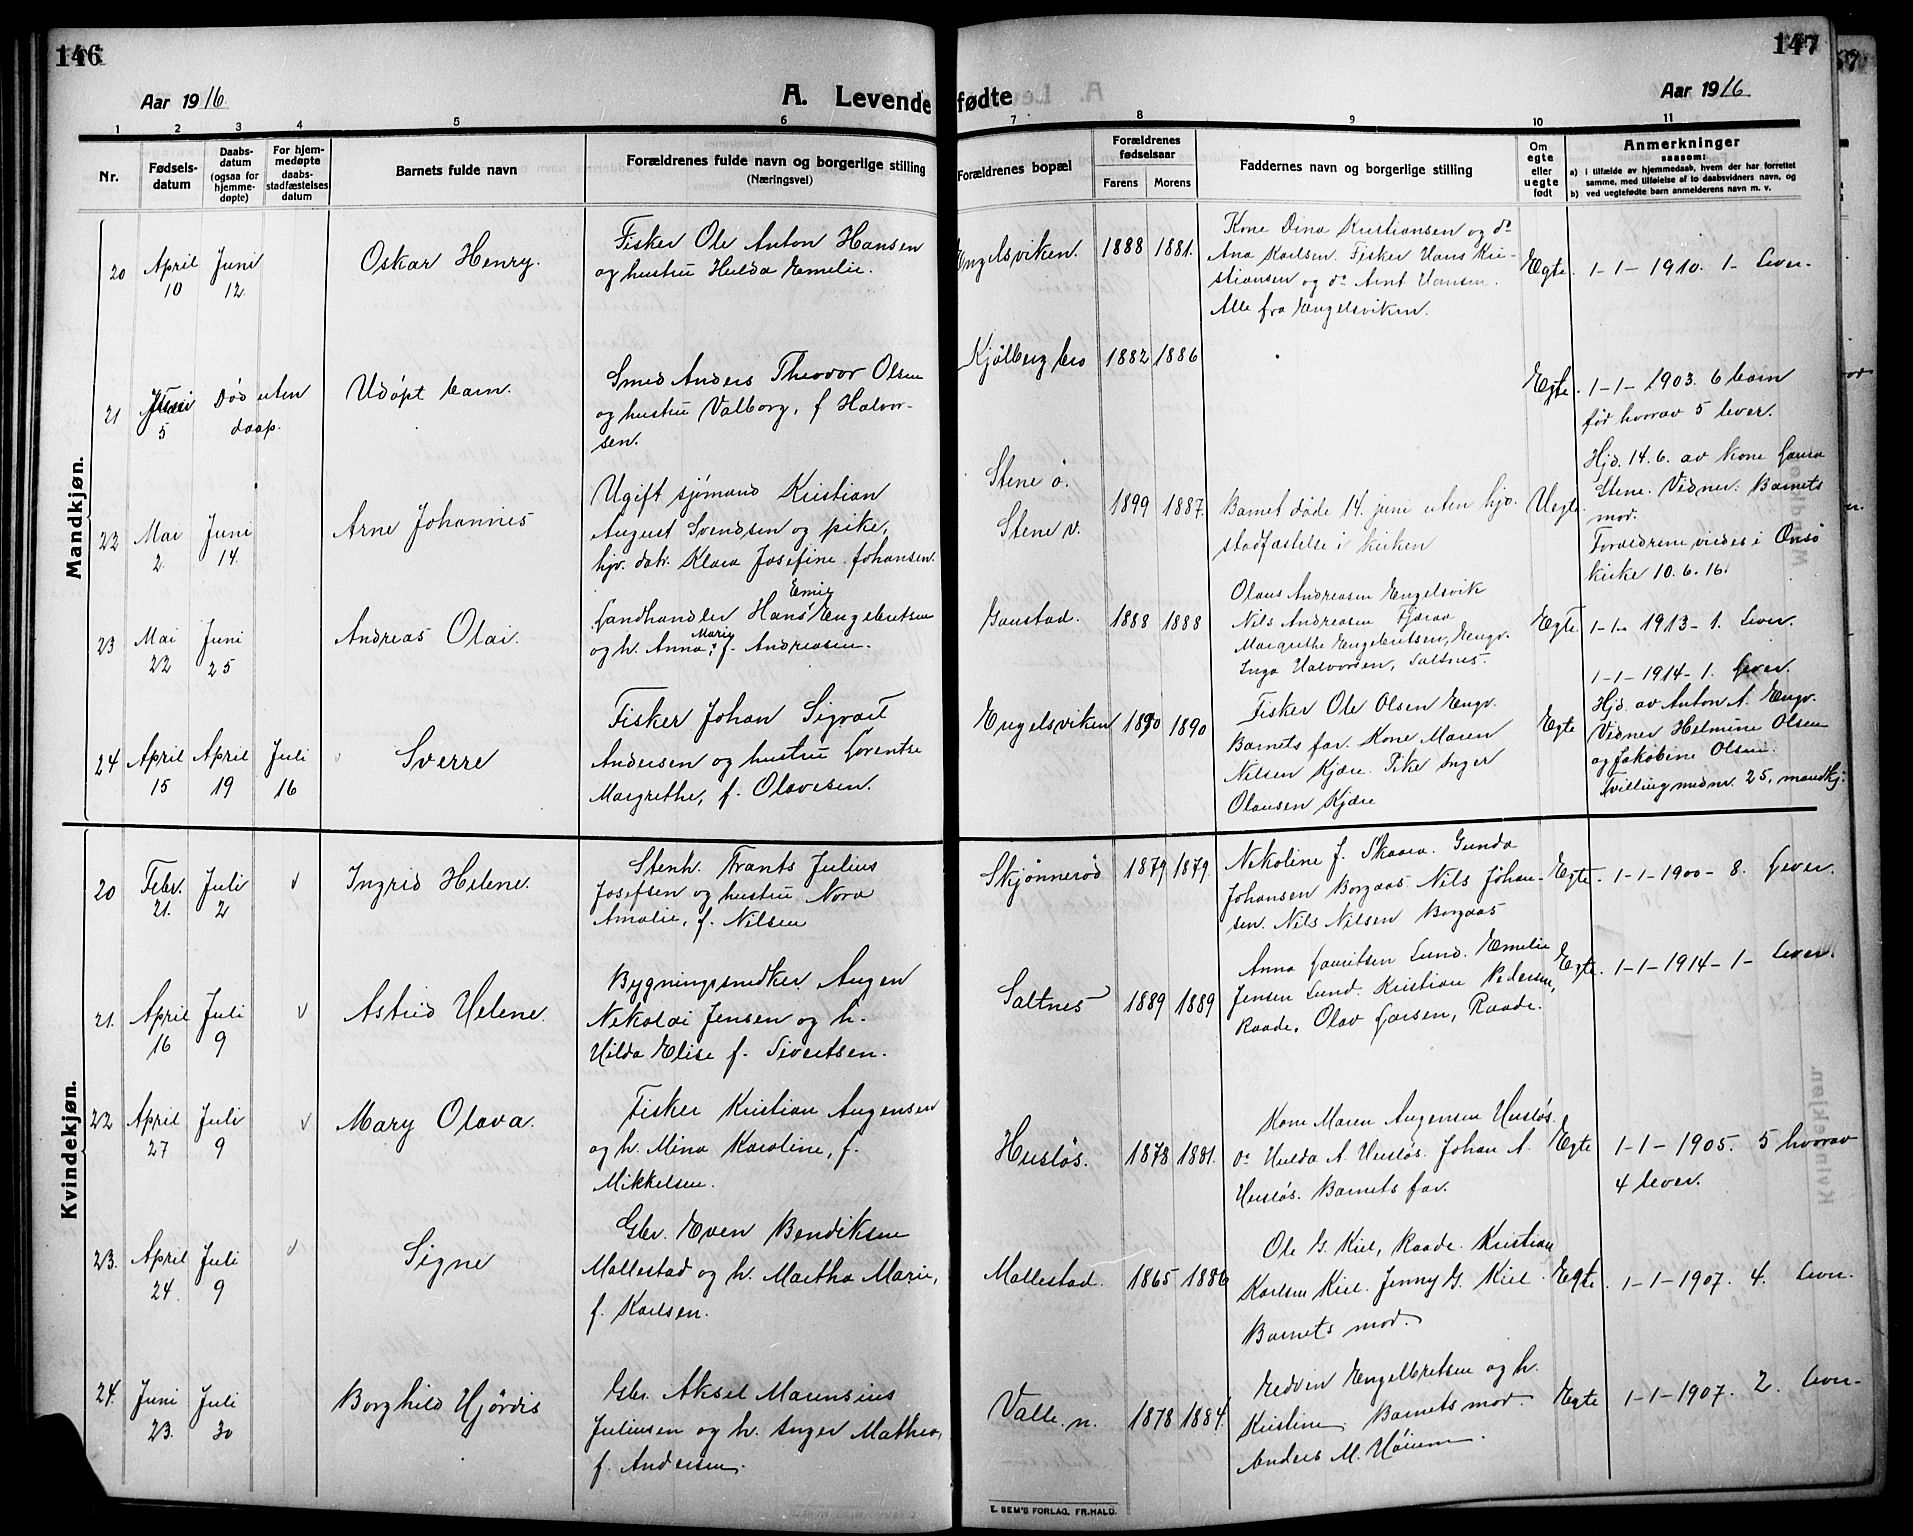 146
Aar 1916.
A. Levende
1 2 3 4 5 6
Nr.
Fødsels-
datum
Daabs-
datum
(ogsaa for
hjemme-
døpte)
For hjem-
medøpte
daabs-
stadfæstelses
datum
Barnets fulde navn
Forældrenes fulde navn og borgerlige stilling
(Næringsvei)
Mandkjøn.
20 April 10 Juni 12. Oskar Henry.
Fisker Ole Anton Hansen
og hustru Hulda Emelie.
21 Juni 5 Død uten daap. Udøpt barn.
Smed Anders Theodor Olsen
og hustru Valborg, f Halvor-
sen.
22 Mai 2. Juni 14. Arne Johannes
Ugift sjømand Kristian
August Svendsen og pike,
hjv. datr. Klara Josefine Johansen.
23 Mai 22 Juni 25 Andreas Olai.
Landhandler Hans Emil Engebretsen
og h. Anna Marie, f. Andreasen.
24 April 15 April 19 Juli 16 Sverre
Fisker Johan Sigvart
Andersen og hustru Lorentse
Margrethe, f. Olavesen.
Kvindekjøn.
20 Febr. 21. Juli 2 √ Ingrid Helene.
Stenh. Frants Julius
Josefsen og hustru Nora
Amalie, f. Nilsen
21. April 16 Juli 9 √ Astrid Helene.
Bygningssnedker Augen
Nikolai Jensen og h.
Hilda Elise f. Sivertsen.
22 April 27 Juli 9 √ Mary Olava.
Fisker Kristian Augensen
og h. Mina Karoline, f.
Mikkelsen.
23. April 24. Juli 9 √ Signe
Gbr. Even Bendiksen
Mallestad og h. Martha Marie,
f. Karlsen.
24. Juni 23. Juli 30 Borghild Hjørdis
Gbr. Aksel Marensius
Juliussen og h. Inger Mathea,
f. Andersen.
147
fødte
Aar 1916
7 8 9 10 11
Forældrenes bopæl
Forældrenes
fødselsaar
Farens Morens
Faddernes navn og borgerlige stilling
Om
egte
eller
uegte
født
Anmerkninger
saasom:
a) i tilfælde av hjemmedaab, hvem der har forrettet
samme, med tilføielse af to daabsvidners navn, og
b) ved uegtefødte barn anmelderens navn m. v.
Engelsviken. 1888 1881.
Kone Dina Kristiansen og do
Ana Karlsen. Fisker Hans Kri-
stiansen og do Arnt Hansen.
Alle fra Engelsviken.
Egte. 1-1-1910. 1- lever.
Kjølberg bro 1882 1886
Egte. 1-1-1903. 6 barn
før hvorav 5 lever.
Stene ø.
Stene v.
1899 1887.
Barnet døde 14. juni uten hjd.
stadfæstelse i kirken
Uegte.
Hjd. 14.6. av kone Laura
Stene. Vidner: Barnets
mor.
Forældrene viedes i Onsø
kirke 10.6.16.
Gaustad. 1888 1888
Olaus Andreasen Engelsvik
Nils Andreasen
Margrethe Engebretsen, Engv.
Inga Halvorsen, Saltnes.
Egte 1-1-1913-1. lever.
Engelsviken 1890 1890
Fisker Ole Olsen Engv.
Barnets far. Kone Maren
Nilsen Kjære. Pike Inger
Olausen Kjære
Egte
1-1-1914-1. lever.
Hjd. av Anton A. Engv.
Vidner Helmine Olsen
og Jakobine Olsen.
Tvilling med nr. 25, mandkj.
Skjønnerød 1879 1879
Nikoline J. Skaara. Gunda
Johansen Borgaas. Nils Johan-
sen. Nils Nilsen Borgaas
Egte. 1-1-1900-8. lever.
Saltnes 1889 1889
Anna Lauritsen Lund. Emelie
Jensen Lund. Kristian Pedersen,
Raade, Olav Larsen, Raade.
Egte. 1-1-1914-1- lever.
Husløs. 1878 1881.
Kone Maren Augensen Husløs.
do Hulda A. Husløs. Johan A.
Husløs. Barnets far.
Egte 1-1-1905. 5 hvorav
4 lever.
Mallestad. 1865 1886
Ole G. Kiel, Raade. Kristian
Karlsen Kiel. Jenny G. Kiel.
Barnets mor.
Egte. 1-1-1907. 4. lever.
Valle. n. 1878 1884.
Edvin Engelbretsen og h.
Kristine. Barnets mor.
Anders M.
Egte 1-1-1907. 2. lever.
E. SEM'S FORLAG. FR.HALD.